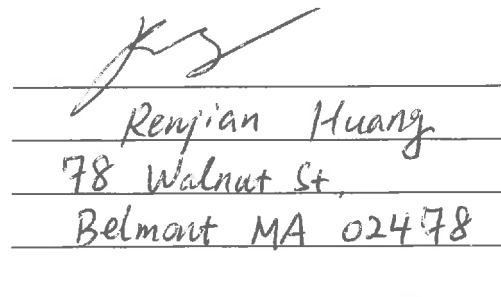 Renjian Huang
78 Walnut St.
Belmont MA 02478